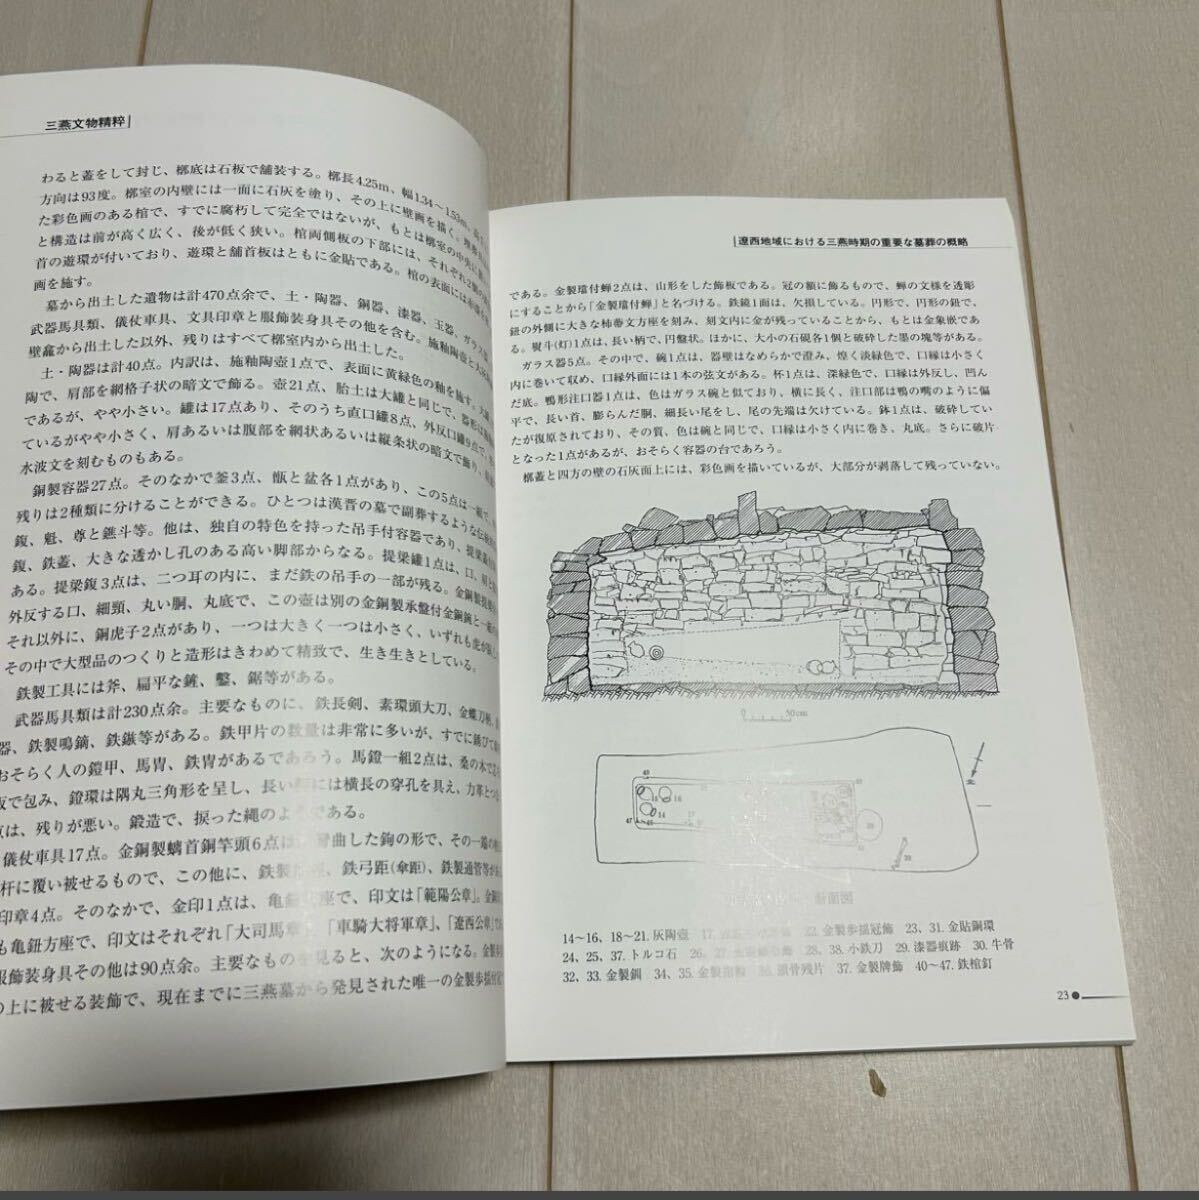 三燕文物精粋
わると蓋をして封じ、槨底は石板で舗装する。槨長4.25m、幅1.34～1.53m、
方向は93度。槨室の内壁には一面に石灰を塗り、その上に壁画を描く。
た彩色画のある棺で、すでに腐朽して完全ではないが、もとは槨室の中央に
と構造は前が高く広く、後が低く狭い。棺両側板の下部には、それぞれ2個の
首の遊環が付いており、遊環と舗首板はともに金貼である。棺の表面には
画を施す。
墓から出土した遺物は計470点余で、土・陶器、銅器、漆器、玉器、ガラス
武器馬具類、儀仗車具、文具印章と服飾装身具その他を含む。施釉陶壺と
壁龕から出土した以外、残りはすべて槨室内から出土した。
土・陶器は計40点。内訳は、施釉陶壺1点で、表面に黄緑色の釉を施す。
陶で、肩部を網格子状の暗文で飾る。壺21点、胎土は大罐と同じで、器形は
であるが、やや小さい。罐は17点あり、そのうち直口罐8点、外反口罐9点で、
ているがやや小さく、肩あるいは腹部を網状あるいは縦条状の暗文で飾り、
水波文を刻むものもある。
銅製容器27点。そのなかで釜3点、甑と盆各1点があり、この5点は一組で、
残りは2種類に分けることができる。ひとつは漢晋の墓で副葬するような伝統的
鍑、魁、尊と鐎斗等。他は、独自の特色を持った吊手付容器であり、提梁
鍑、鉄蓋、大きな透かし孔のある高い脚部からなる。提梁罐1点は、口、肩と
ある。提梁鍑3点は、二つ耳の内に、まだ鉄の吊手の一部が残る。金銅製提梁
外反する口、細頸、丸い胴、丸底で、この壺は別の金銅製承盤付金銅鐎と一組の
それ以外に、銅虎子2点があり、一つは大きく一つは小さく、いずれも虎が
その中で大型品のつくりと造形はきわめて精致で、生き生きとしている。
鉄製工具には斧、扁平な鏟、鑿、鋸等がある。
武器馬具類は計230点余。主要なものに、鉄長剣、素環頭大刀、金蝶刀柄、
器、鉄製鳴鏑、鉄鏃等がある。鉄甲片の数量は非常に多いが、すでに錆びて
おそらく人の鎧甲、馬冑、鉄冑があるであろう。馬鐙一組2点は、桑の木で芯を
板で包み、鐙環は隅丸三角形を呈し、長い には横長の穿孔を具え、力革と
点は、残りが悪い。鍛造で、捩った縄のようである。
儀仗車具17点。金銅製螭首銅竿頭6点は、 曲した鉤の形で、その一端の
杆に覆い被せるもので、この他に、鉄製 、鉄弓距(傘距)、鉄製通管等が
印章4点。そのなかで、金印1点は、亀鈕 座で、印文は「範陽公章」。金銅
も亀鈕方座で、印文はそれぞれ「大司馬章」、「車騎大将軍章」、「遼西公章」で
服飾装身具その他は90点余。主要なものを見ると、次のようになる。金製歩
の上に被せる装飾で、現在までに三燕墓から発見された唯一の金製歩揺冠
遼西地域における三燕時期の重要な墓葬の概略
である。金製璫付蝉2点は、山形をした飾板である。冠の額に飾るもので、蝉の文様を透彫
にすることから「金製璫付蝉」と名づける。鉄鏡1面は、欠損している。円形で、円形の鈕で、
鈕の外側に大きな柿蔕文方座を刻み、刻文内に金が残っていることから、もとは金象嵌であ
る。熨斗(灯)1点は、長い柄で、円盤状。ほかに、大小の石硯各1個と破砕した墨の塊等がある。
ガラス器5点。その中で、碗1点は、器壁はなめらかで澄み、煌く淡緑色で、口縁は小さく
内に巻いて収め、口縁外面には1本の弦文がある。杯1点は、深緑色で、口縁は外反し、凹ん
だ底。鴨形注口器1点は、色はガラス碗と似ており、横に長く、注口部は鴨の嘴のように偏
平で、長い首、膨らんだ胴、細長い尾をし、尾の先端は欠けている。鉢1点は、破砕してい
たが復原されており、その質、色は碗と同じで、口縁は小さく内に巻き、丸底。さらに破片
となった1点があるが、おそらく容器の台であろう。
槨蓋と四方の壁の石灰面上には、彩色画を描いているが、大部分が剥落して残っていない。
0 50cm
断面図
14～16、18～21. 灰陶壺 17. 22. 金製歩揺冠飾 23、31. 金貼銅環
24、25、37. トルコ石 26、 28、38. 小鉄刀 29. 漆器痕跡 30. 牛骨
32、33. 金製釧 34、35. 金製指輪 36. 頭骨残片 37. 金製牌飾 40～47. 鉄棺釘
23